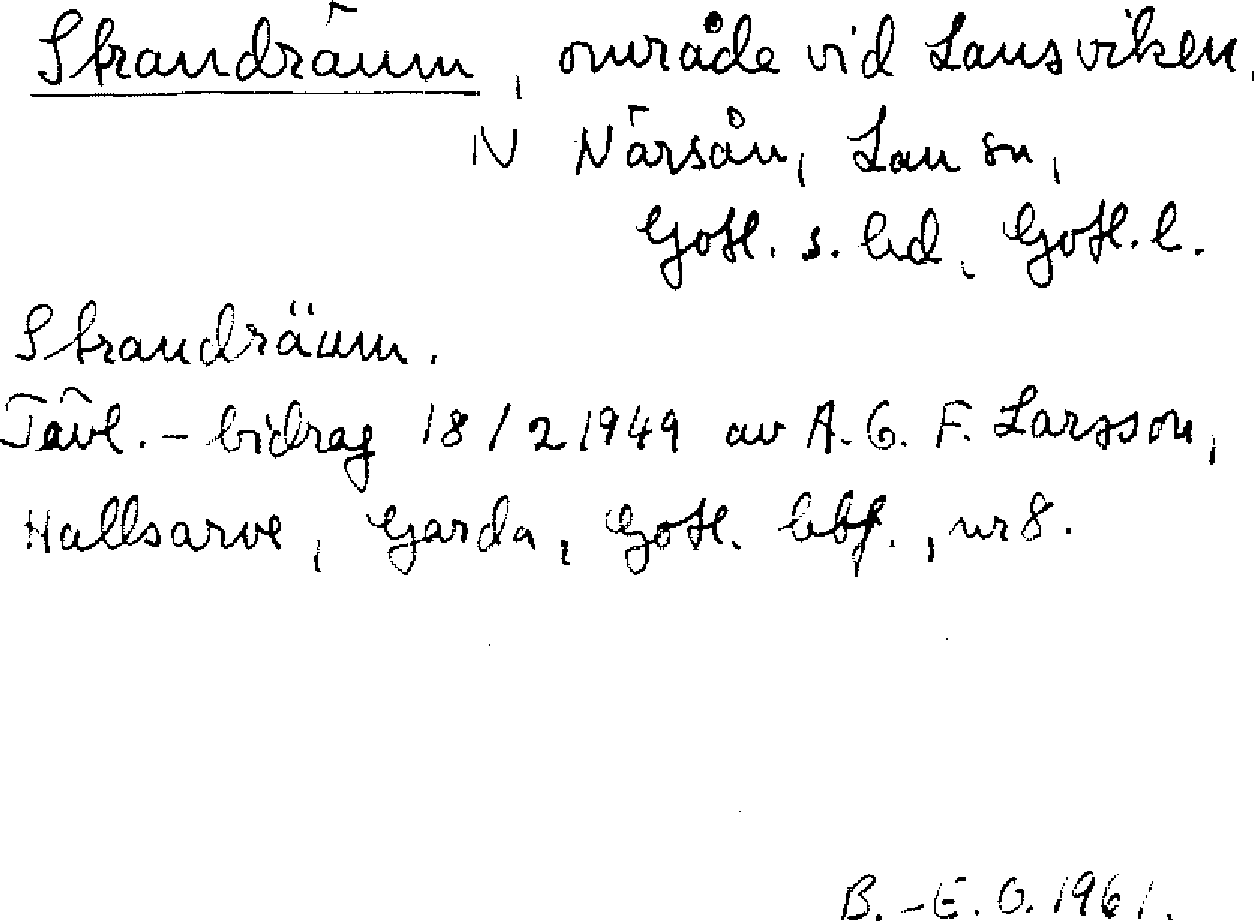 Strandräum, område vid Lausviken,
N Närsån, Lau sn,
Gotl. s. hd, Gotl. l.
Strandräum.
Tävl.-bidrag 18/2 1949 av A. G. F. Larsson,
Hallsarve, Garda, Gotl. hbf., nr 8.
B.-E. O. 1961.